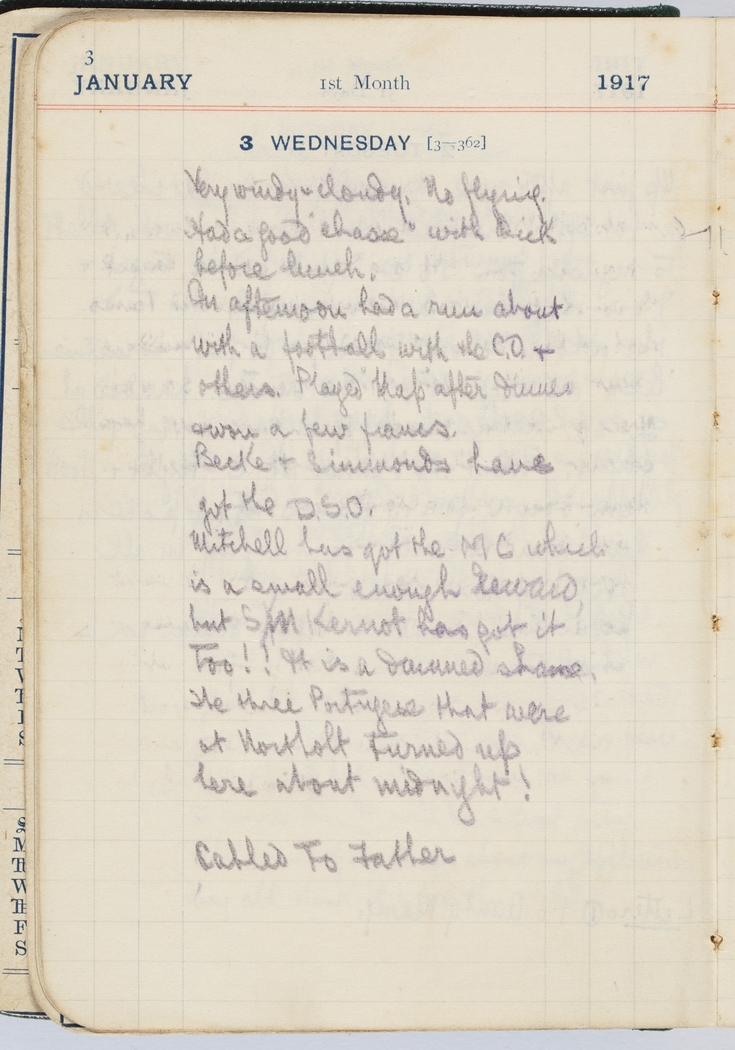 3
JANUARY 1st Month 1917
3 WEDNESDAY [3—362]
Very windy & cloudy. No flying.
Had a good "chasse" with Dick
before lunch.
In afternoon had a run about
with a football with the C.O. +
others. Played "Nap" after dinner
& won a few francs.
Becke + Simmonds have
got the D.S.O.
Mitchell has got the M C which
is a small enough reward,
but Kernot has got it
Too!! It is a damned shame.
The three Portugese that were
at Northolt turned up
here about midnight!
Cabled To Father
S
M
W
F
S